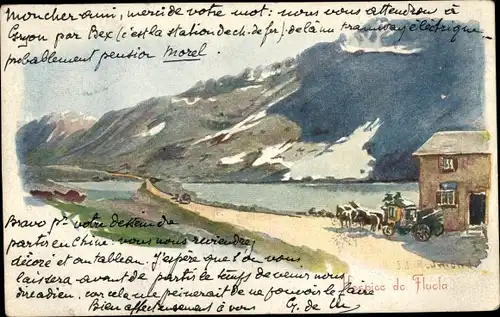 Mon cher ami, merci de votre mot: nous vous attendron à
Gryon par Bex (c'est la station de ch. de fer). de là un tramway électrique-
probablement pension Morel.
Bravo pr votre
partir en Chine. vous nous reviendrez
décoré et au tableau. J'espère que l'on vous
laissera avant de partir le temps de venir nous
dire adieu, car cela me peinerait de ne pouvoir le faire
Bien affectueusement à vous G. de
Hospice de Fluela